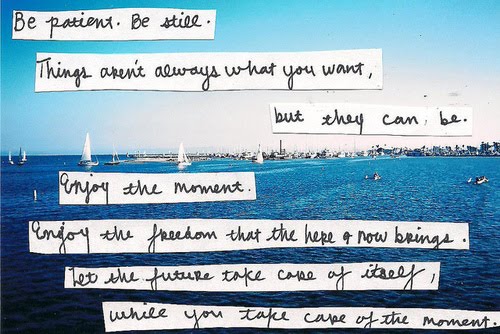 Be patient. Be still.
Things aren't always what you want,
but they can be.
Enjoy the moment.
Enjoy the freedom that the here & now brings.
Let the future take care of itself,
while you take care of the moment.